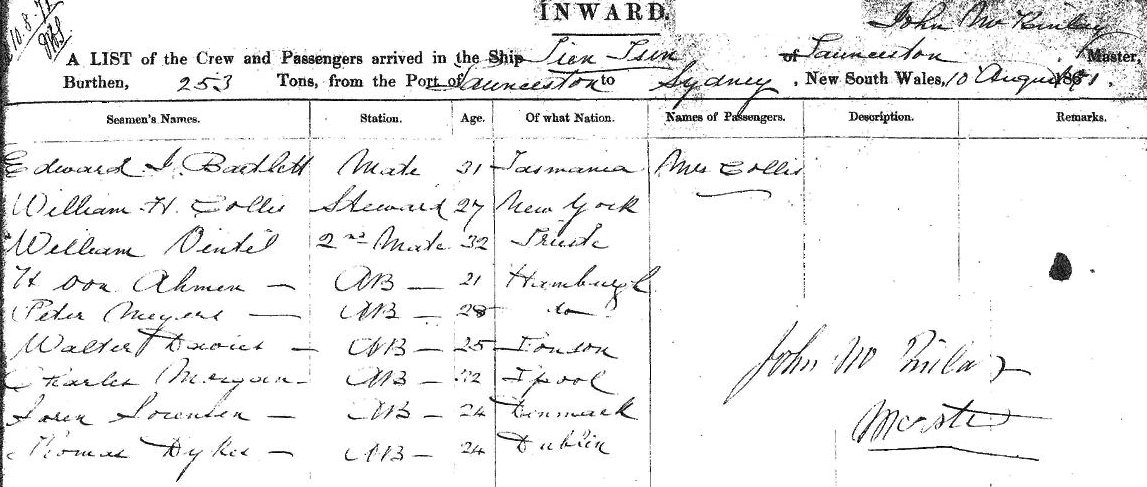 10.8.71
INWARD.
John McKinlay
A LIST of the Crew and Passengers arrived in the Ship Tien Tsin of Launceston Master,
Burthen, 253 Tons, from the Port of Launceston to Sydney, New South Wales, 10 August 1871.
Seamen's Names. Station. Age. Of what Nation. Names of Passengers. Description. Remarks.
Edward J. Bartlett Mate 31 Tasmania Mrs Collis
William H. Collis Steward 27 New York
William 2nd Mate 32 Trieste
H von Ahmen — AB — 21 Hamburgh
Peter Meyers — AB — 28 do
Walter Davies — AB — 25 London
Charles Morgan — AB — 32 Lpool
Soren Sorensen — AB — 24 Denmark
Thomas Dykes — AB — 24 Dublin
John McKinlay
Master